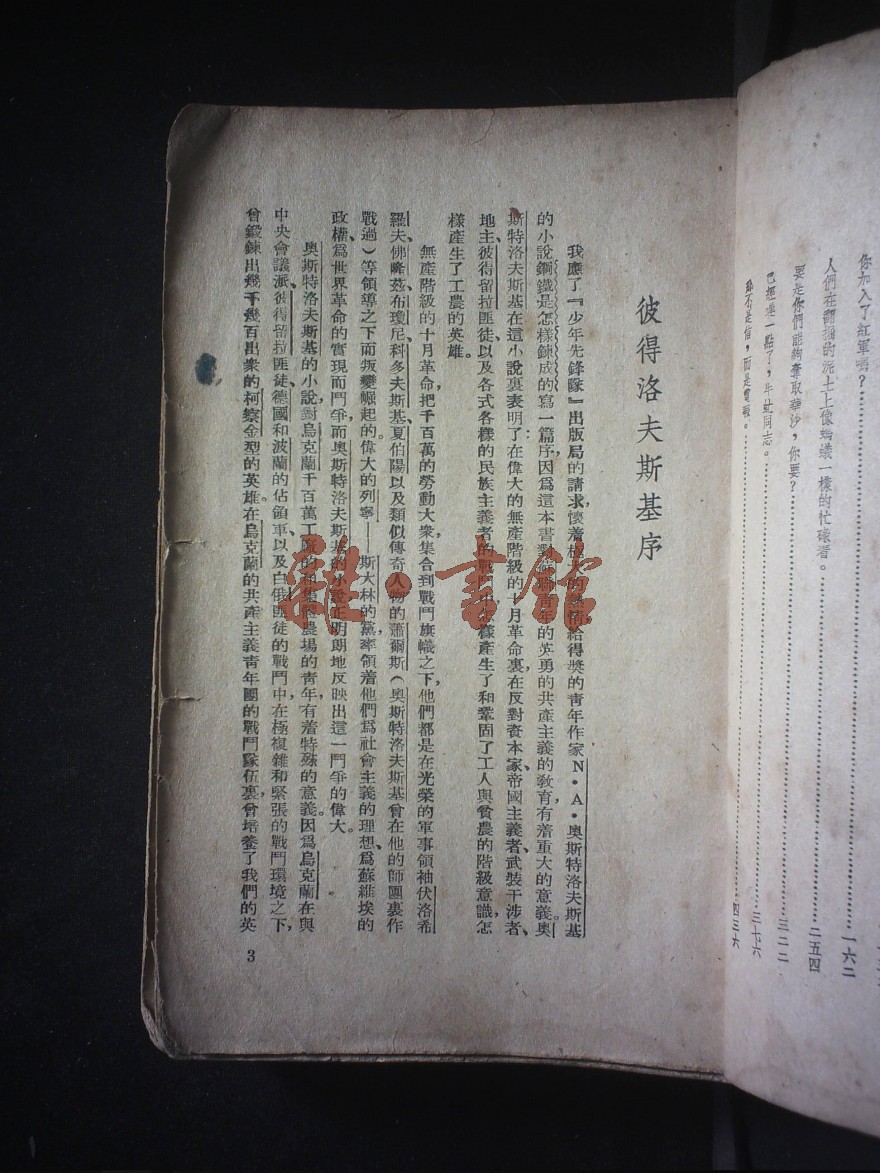 你加入了紅軍嗎?
一六二
人們在翻掘的泥土上像螞蟻一樣的忙碌着。
二五四
要是你們能夠奪取華沙,你要?
三二二
已經進一點了,牛虻同志。
三七六
而是實彈。
四三六
彼得洛夫斯基序
我應了『少年先鋒隊』出版局的請求,懷着極大的熱情給得獎的青年作家N•A•奧斯特洛夫斯基
的小說鋼鐵是怎樣鍊成的寫一篇序,因爲這本書對蘇聯青年的英勇的共產主義的敎育有着重大的意義。奧
斯特洛夫斯基在這小說裏表明了:在偉大的無產階級的十月革命裏,在反對資本家、帝國主義者、武裝干涉者、
地主、彼得留拉匪徒以及各式各樣的民族主義者的戰鬥中怎樣產生了和鞏固了工人與貧農的階級意識,怎
樣產生了工農的英雄。
無產階級的十月革命,把千百萬的勞動大衆,集合到戰鬥旗幟之下,他們都是在光榮的軍事領袖伏洛希
羅夫、佛隆茲、布瓊尼、科多夫斯基、夏伯陽以及類似傳奇人物的蕭爾斯(奧斯特洛夫斯基曾在他的師團裏作
戰過)等領導之下而叛變崛起的。偉大的列寧——斯大林的黨,率領着他們爲社會主義的理想、爲蘇維埃的
政權、爲世界革命的實現而鬥爭,而奧斯特洛夫斯基的小說正明朗地反映出這一鬥爭的偉大。
奧斯特洛夫斯基的小說對烏克蘭千百萬工廠的和集體農場的青年,有着特殊的意義。因爲烏克蘭在與
中央會議派、彼得留拉匪徒、德國和波蘭的佔領軍、以及白俄匪徒的戰鬥中,在極複雜和緊張的戰鬥環境之下,
曾鍛鍊出幾千幾百出衆的柯察金型的英雄。在烏克蘭的共產主義青年團的戰鬥隊伍裏,曾培養了我們的英
3
雜•書館